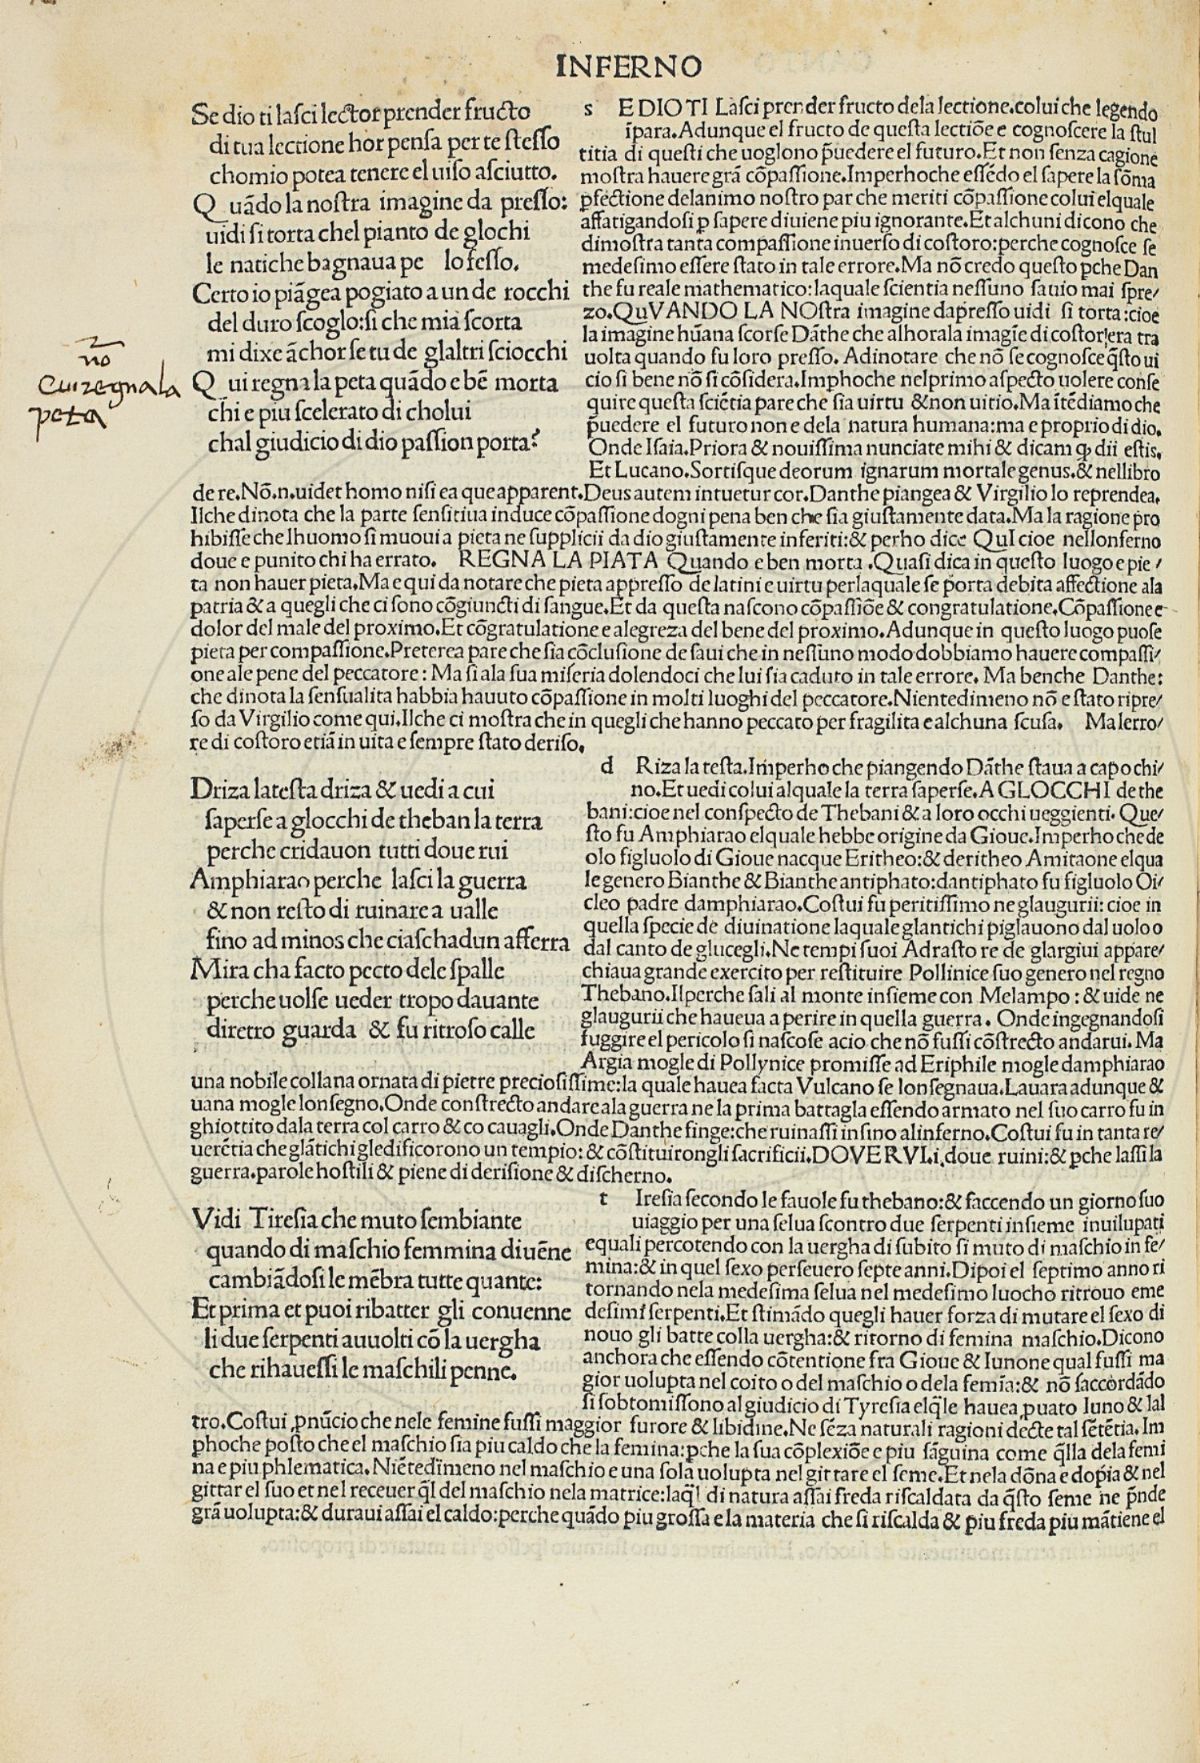 INFERNO
Se dio ti lasci lector prender fructo
di tua lectione hor pensa per te stesso
chomio potea tenere el uiso asciutto.
Quãdo la nostra imagine da presso:
uidi si torta chel pianto de glochi
le natiche bagnaua pe lo fesso.
Certo io piãgea pogiato a un de rocchi
del duro scoglo:si che mia scorta
mi dixe ãchor se tu de glaltri sciocchi
Qui regna la peta quãdo e bẽ morta
chi e piu scelerato di cholui
chal giudicio di dio passion porta?
nō
cui regna la
peta
s EDIO TI Lasci prender fructo dela lectione.colui che legendo
ĩpara.Adunque el fructo de questa lectiõe e cognoscere la stul
titia di questi che uoglono p̃uedere el futuro.Et non senza cagione
mostra hauere grã cõpassione.Imperhoche essẽdo el sapere la sõma
ꝑfectione delanimo nostro par che meriti cõpassione colui elquale
affatigandosi ꝑ sapere diuiene piu ignorante.Et alchuni dicono che
dimostra tanta compassione inuerso di costoro:perche cognosce se
medesimo essere stato in tale errore.Ma nõ credo questo ꝑche Dan
the fu reale mathematico:laquale scientia nessuno sauio mai spre/
zo.QuVANDO LA NOstra imagine dapresso uidi si torta:cioe
la imagine hũana scorse Dãthe che alhorala imagĩe di costor!era tra
uolta quando fu loro presso. Adinotare che nõ se cognosce q̃sto ui
cio si bene nõ si cõsidera.Imꝑhoche nelprimo aspecto uolere conse
quire questa sciẽtia pare che sia uirtu & non uitio.Ma ĩtẽdiamo che
p̃uedere el futuro non e dela natura humana:ma e proprio di dio.
Onde Isaia.Priora & nouissima nunciate mihi & dicam ꝙ dii estis.
Et Lucano.Sortisque deorum ignarum mortale genus.& nellibro
de re.Nõ.n.uidet homo nisi ea que apparent.Deus autem intuetur cor.Danthe piangea & Virgilio lo reprendea.
Ilche dinota che la parte sensitiua induce cõpassione dogni pena ben che sia giustamente data.Ma la ragione pro
hibisse che lhuomo si muoui a pieta ne supplicii da dio giustamente inferiti:& perho dice QuI cioe nellonferno
doue e punito chi ha errato. REGNA LA PIATA Quando e ben morta .Quasi dica in questo luogo e pie /
ta non hauer pieta.Ma e qui da notare che pieta appresso de latini e uirtu perlaquale se porta debita affectione ala
patria & a quegli che ci sono cõgiuncti di sangue.Et da questa nascono cõpassiõe & congratulatione.Cõpassione e
dolor del male del proximo.Et cõgratulatione e alegreza del bene del proximo.Adunque in questo luogo puose
pieta per compassione.Preterea pare che sia cõclusione de saui che in nessuno modo dobbiamo hauere compassi/
one ale pene del peccatore: Ma si ala sua miseria dolendoci che lui sia caduto in tale errore. Ma benche Danthe:
che dinota la sensualita habbia hauuto cõpassione in molti luoghi del peccatore.Nientedimeno nõ e stato ripre/
so da Virgilio come qui.Ilche ci mostra che in quegli che hanno peccato per fragilita e alchuna scusa. Ma lerro/
re di costoro etiã in uita e sempre stato deriso.
Driza la testa driza & uedi a cui
saperse a glocchi de theban la terra
perche cridauon tutti doue rui
Amphiarao perche lasci la guerra
& non resto di ruinare a ualle
fino ad minos che ciaschadun afferra
Mira cha facto pecto dele spalle
perche uolse ueder tropo dauante
diretro guarda & fu ritroso calle
d Riza la testa.Imperho che piangendo Dãthe staua a capo chi/
no.Et uedi colui alquale la terra saperse.A GLOCCHI de the
bani:cioe nel conspecto de Thebani & a loro occhi ueggienti. Que/
sto fu Amphiarao elquale hebbe origine da Gioue.Imperho che de
olo figluolo di Gioue nacque Eritheo:& deritheo Amitaone elqua
le genero Bianthe & Bianthe antiphato:dantiphato fu figluolo Oi/
cleo padre damphiarao.Costui fu peritissimo ne glaugurii: cioe in
quella specie de diuinatione laquale glantichi piglauono dal uolo o
dal canto de glucegli.Ne tempi suoi Adrasto re de glargiui appare/
chiaua grande exercito per restituire Pollinice suo genero nel regno
Thebano.Ilperche sali al monte insieme con Melampo : & uide ne
glaugurii che haueua a perire in quella guerra. Onde ingegnandosi
fuggire el pericolo si nascose acio che nõ fussi cõstrecto andarui. Ma
Argia mogle di Pollynice promisse ad Eriphile mogle damphiarao
una nobile collana ornata di pietre preciosissime:la quale hauea facta Vulcano se lonsegnaua.Lauara adunque &
uana mogle lonsegno.Onde constrecto andare ala guerra ne la prima battagla essendo armato nel suo carro fu in
ghiottito dala terra col carro & co cauagli.Onde Danthe finge:che ruinassi insino alinferno.Costui fu in tanta re/
uerẽtia che glãtichi gledificorono un tempio: & cõstituirongli sacrificii.DOVE RVI.i.doue ruini:& ꝑche lassi la
guerra.parole hostili & piene di derisione & discherno.
Vidi Tiresia che muto sembiante
quando di maschio femmina diuẽne
cambiãdosi le mẽbra tutte quante:
Et prima et puoi ribatter gli conuenne
li due serpenti auuolti cõ la uergha
che rihauessi le maschili penne.
t Iresia secondo le fauole fu thebano:& faccendo un giorno suo
uiaggio per una selua scontro due serpenti insieme inuilupati
equali percotendo con la uergha di subito si muto di maschio in fe/
mina:& in quel sexo perseuero septe anni.Dipoi el septimo anno ri
tornando nela medesima selua nel medesimo luocho ritrouo eme
desimi serpenti.Et stimãdo quegli hauer forza di mutare el sexo di
nouo gli batte colla uergha:& ritorno di femina maschio.Dicono
anchora che essendo cõtentione fra Gioue & Iunone qual fussi ma
gior uolupta nel coito o del maschio o dela femĩa:& nõ saccordãdo
si sobtomissono al giudicio di Tyresia elq̃le hauea puato luno & lal
tro.Costui ꝓnũcio che nele femine fussi maggior furore & libidine.Ne sẽza naturali ragioni decte tal sẽtẽtia.Im
phoche posto che el maschio sia piu caldo che la femina:ꝑche la sua cõplexiõe e piu sãguina come q̃lla dela femi
na e piu phlematica.Niẽtedĩmeno nel maschio e una sola uolupta nel gittare el seme.Et nela dõna e dopia & nel
gittar el suo et nel receuer q̃l del maschio nela matrice:laq̃l di natura assai freda riscaldata da q̃sto seme ne p̃nde
grã uolupta:& duraui assai el caldo:perche quãdo piu grossa e la materia che si riscalda & piu freda piu mãtiene el